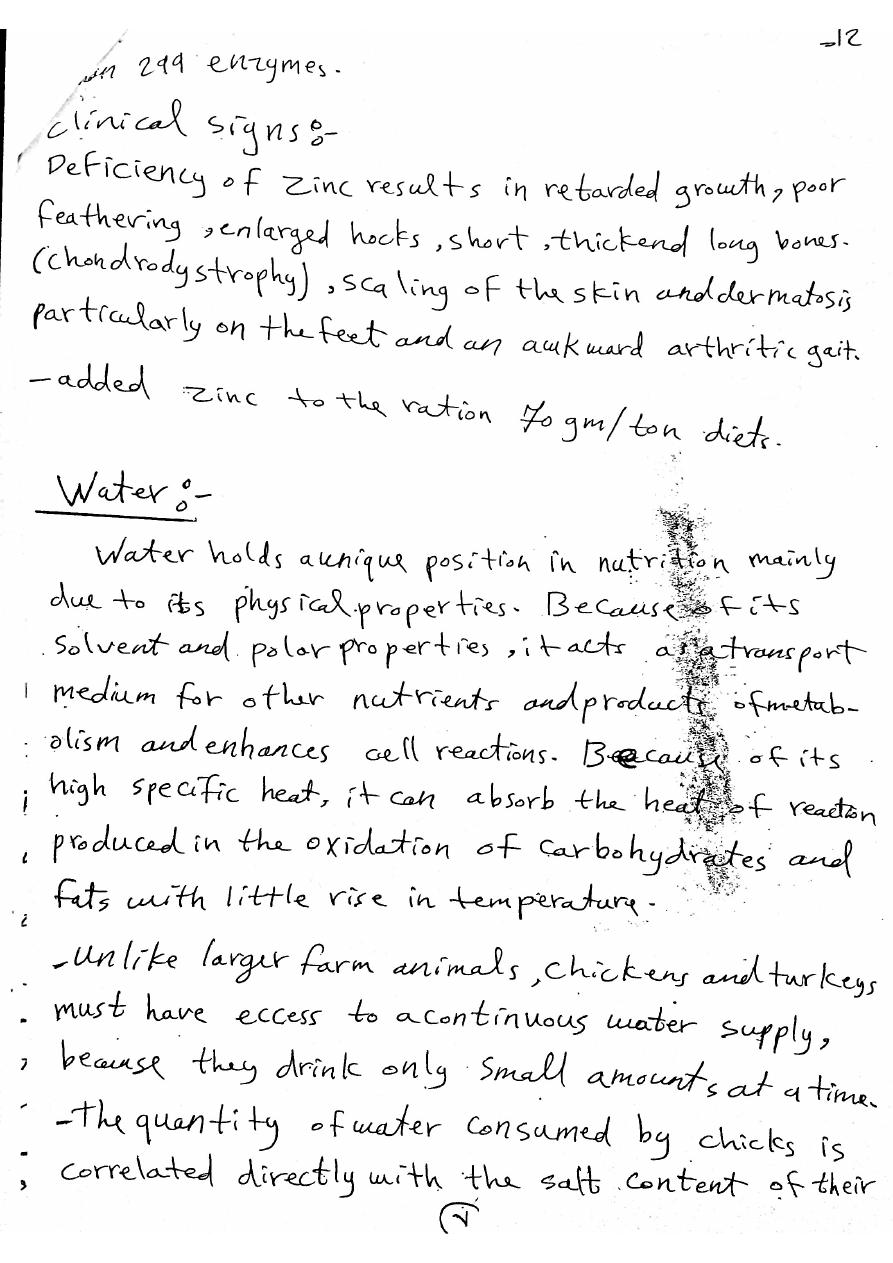 -12
in 299 enzymes.
Clinical signs:-
Deficiency of Zinc results in retarded growth, poor
feathering, enlarged hocks, short, thickend long bones.
(chondrodystrophy), scaling of the skin and dermatosis
particularly on the feet and an awkward arthritic gait.
- added zinc to the ration 70 gm/ton diets.
Water:-
Water holds a unique position in nutrition mainly
due to its physical properties. Because of its
solvent and polar properties, it acts as a transport
medium for other nutrients and products of metab-
olism and enhances cell reactions. Because of its
high specific heat, it can absorb the heat of reaction
produced in the oxidation of carbohydrates and
fats with little rise in temperature.
- Unlike larger farm animals, chickens and turkeys
must have eccess to a continuous water supply,
because they drink only small amounts at a time.
- The quantity of water consumed by chicks is
correlated directly with the salt content of their